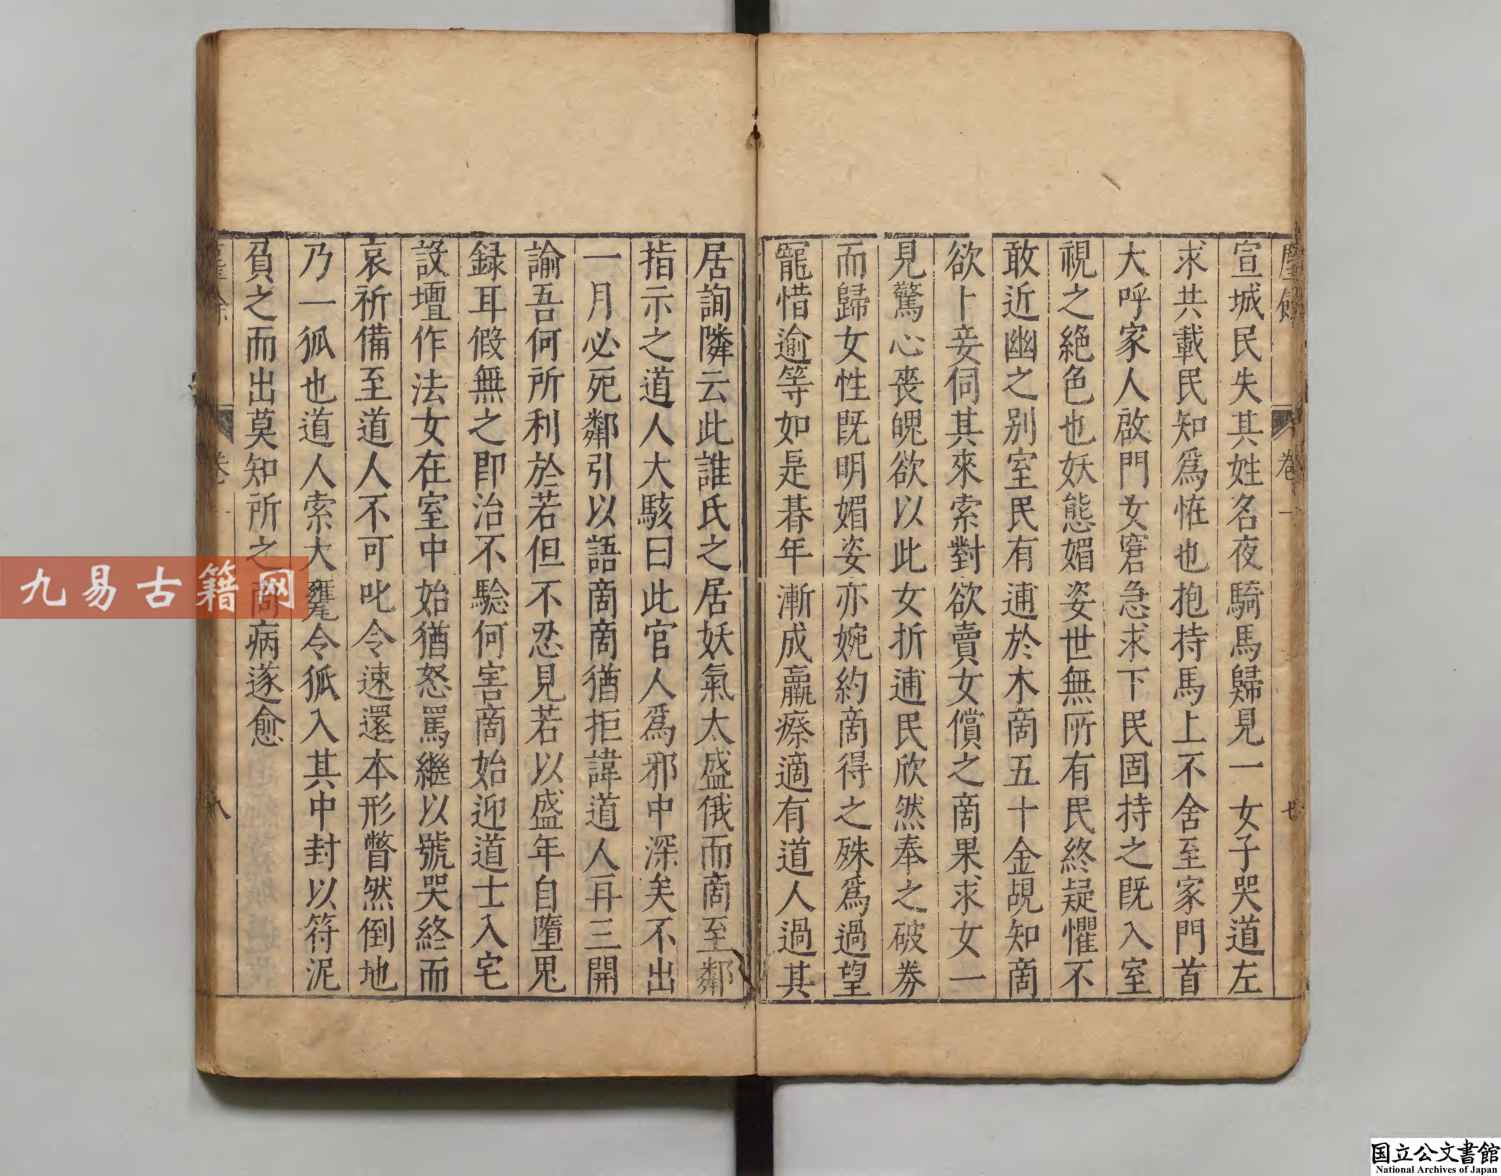 塵餘
卷一
七
宣城民失其姓名夜騎馬歸見一女子哭道左
求共載民知爲恠也抱持馬上不舍至家門首
大呼家人啟門女窘急求下民固持之既入室
視之絶色也妖態媚姿世無所有民終疑懼不
敢近幽之别室民有逋於木商五十金覘知商
欲卜妾伺其來索對欲賣女償之商果求女一
見驚心喪魄欲以此女折逋民欣然奉之破券
而歸女性既明媚姿亦婉約商得之殊爲過望
寵惜逾等如是朞年漸成羸瘵適有道人過其
居詢隣云此誰氏之居妖氣太盛俄而商至鄰
指示之道人大駭曰此官人爲邪中深矣不出
一月必死鄰引以語商商猶拒諱道人再三開
諭吾何所利於若但不忍見若以盛年自墮鬼
録耳假無之即治不驗何害商始迎道士入宅
設壇作法女在室中始猶怒罵繼以號哭終而
哀祈備至道人不可叱令速還本形瞥然倒地
乃一狐也道人索大甕令狐入其中封以符泥
負之而出莫知所之商病遂愈
卷一
八
九易古籍网
国立公文書館
National Archives of Japan